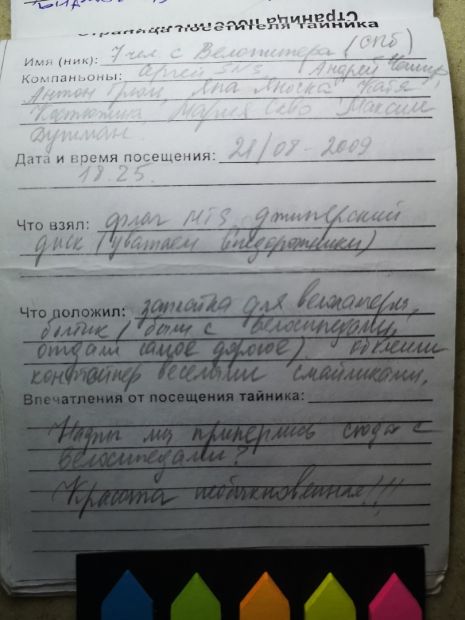 Страница посетителя тайника
Имя (ник): 7 чел с Велопитера (СПб)
Компаньоны: Сергей SNS, Андрей
Антон Гром, Яна Яноска Катя,
Мария Максим
Дата и время посещения: 21/08-2009
18.25.
Что взял: флаг MTS, джиперский
диск (уважаем внедорожники)
Что положил: заплатка для велокамеры,
болтик (были с велосипедами,
отдали самое дорогое) обклеили
контейнер веселыми смайликами.
Впечатления от посещения тайника:
мы приперлись сюда с
велосипедами?
Красота необыкновенная!!!